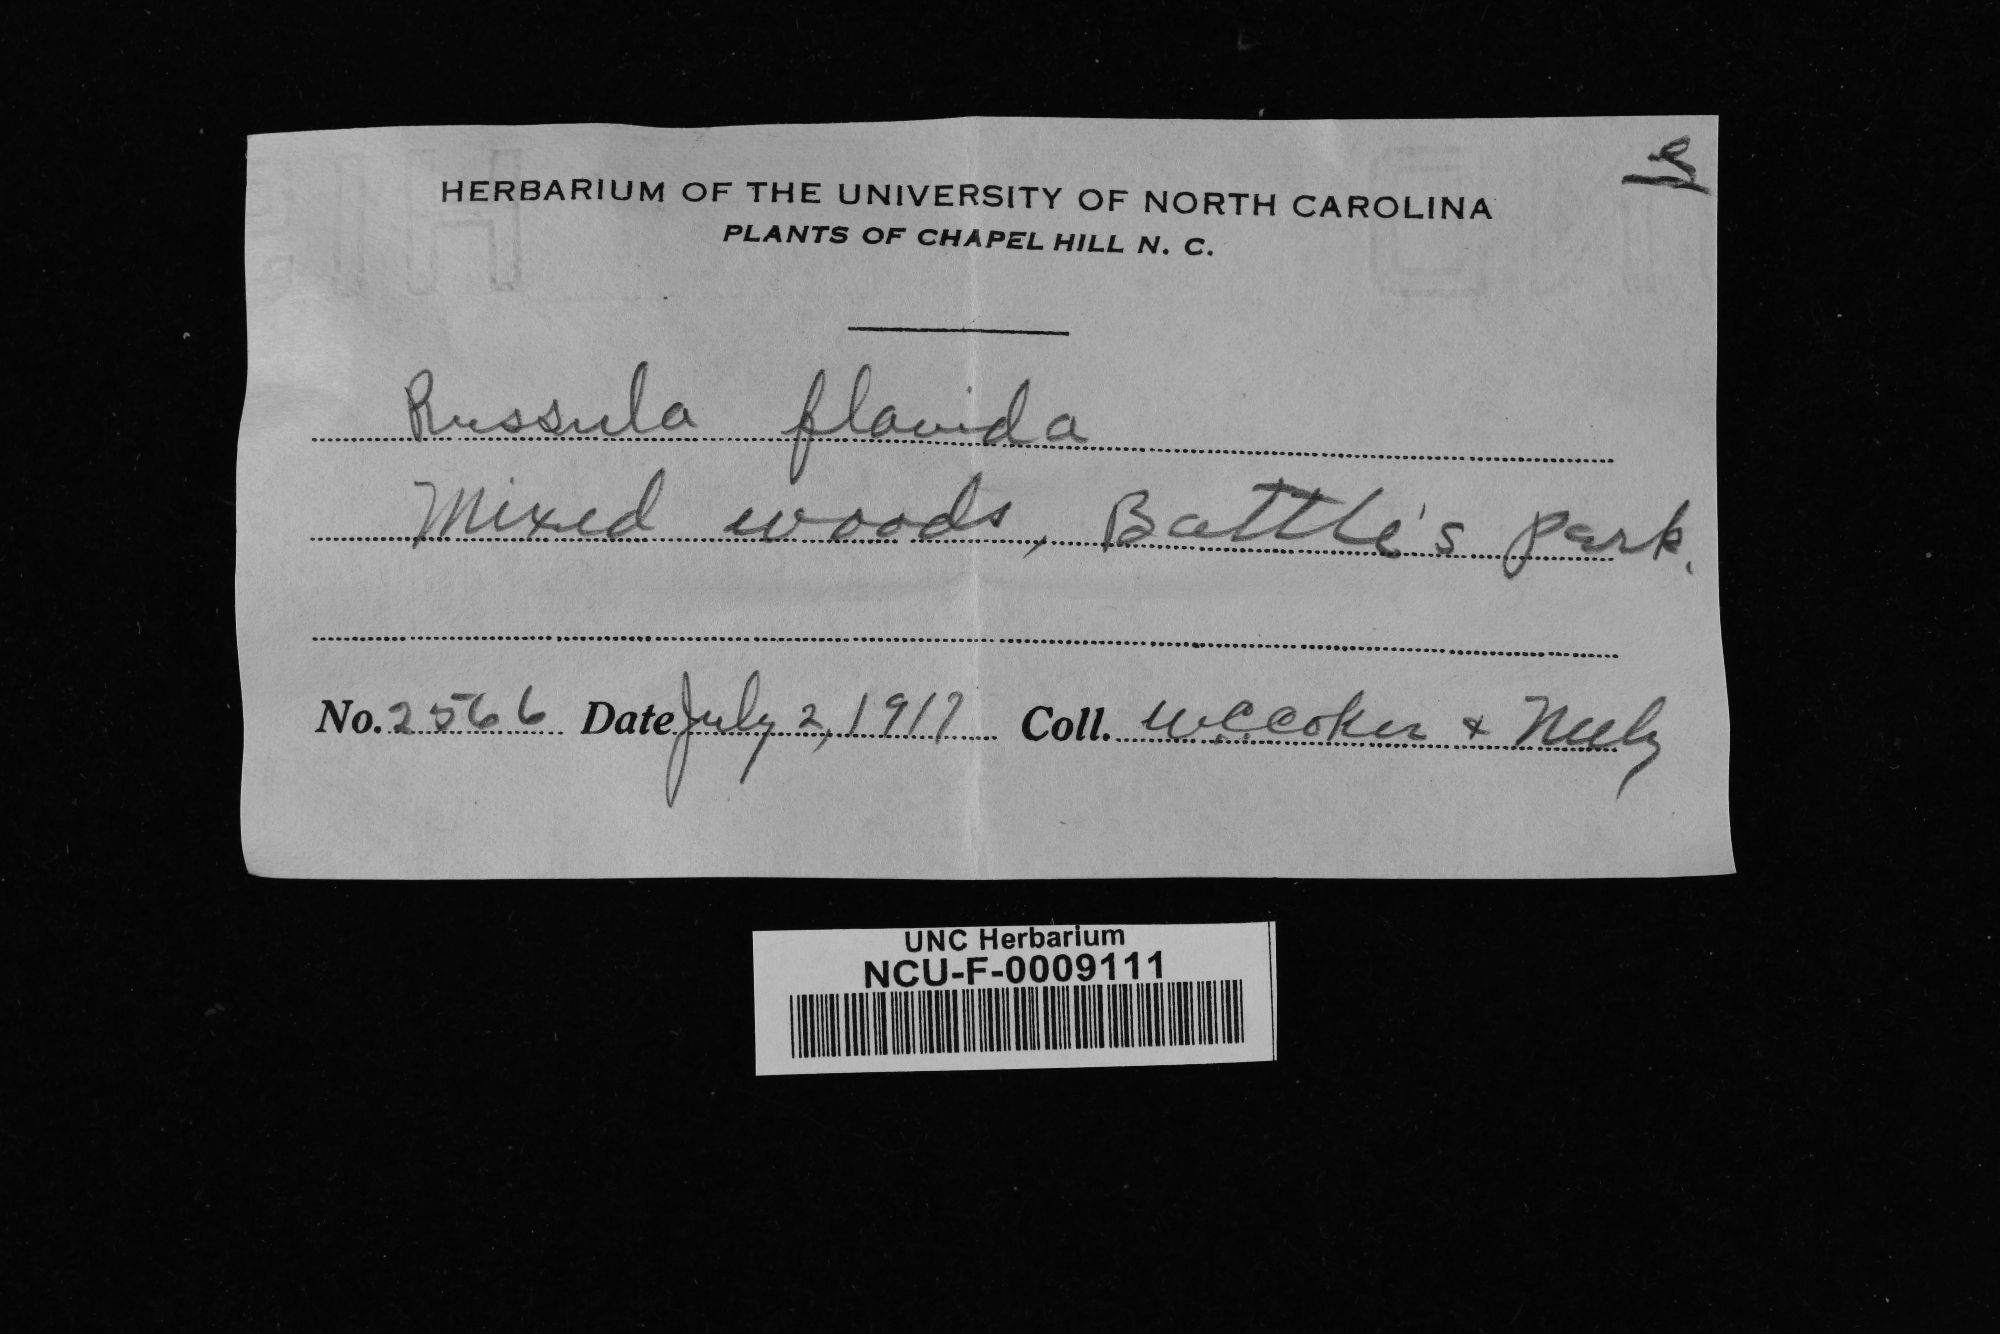 HERBARIUM OF THE UNIVERSITY OF NORTH CAROLINA
PLANTS OF CHAPEL HILL N. C.
Russula flavida
Mixed woods, Battle's Park.
No. 2566 Date July 2, 1917 Coll. W.C. Coker & Neely
UNC Herbarium
NCU-F-0009111